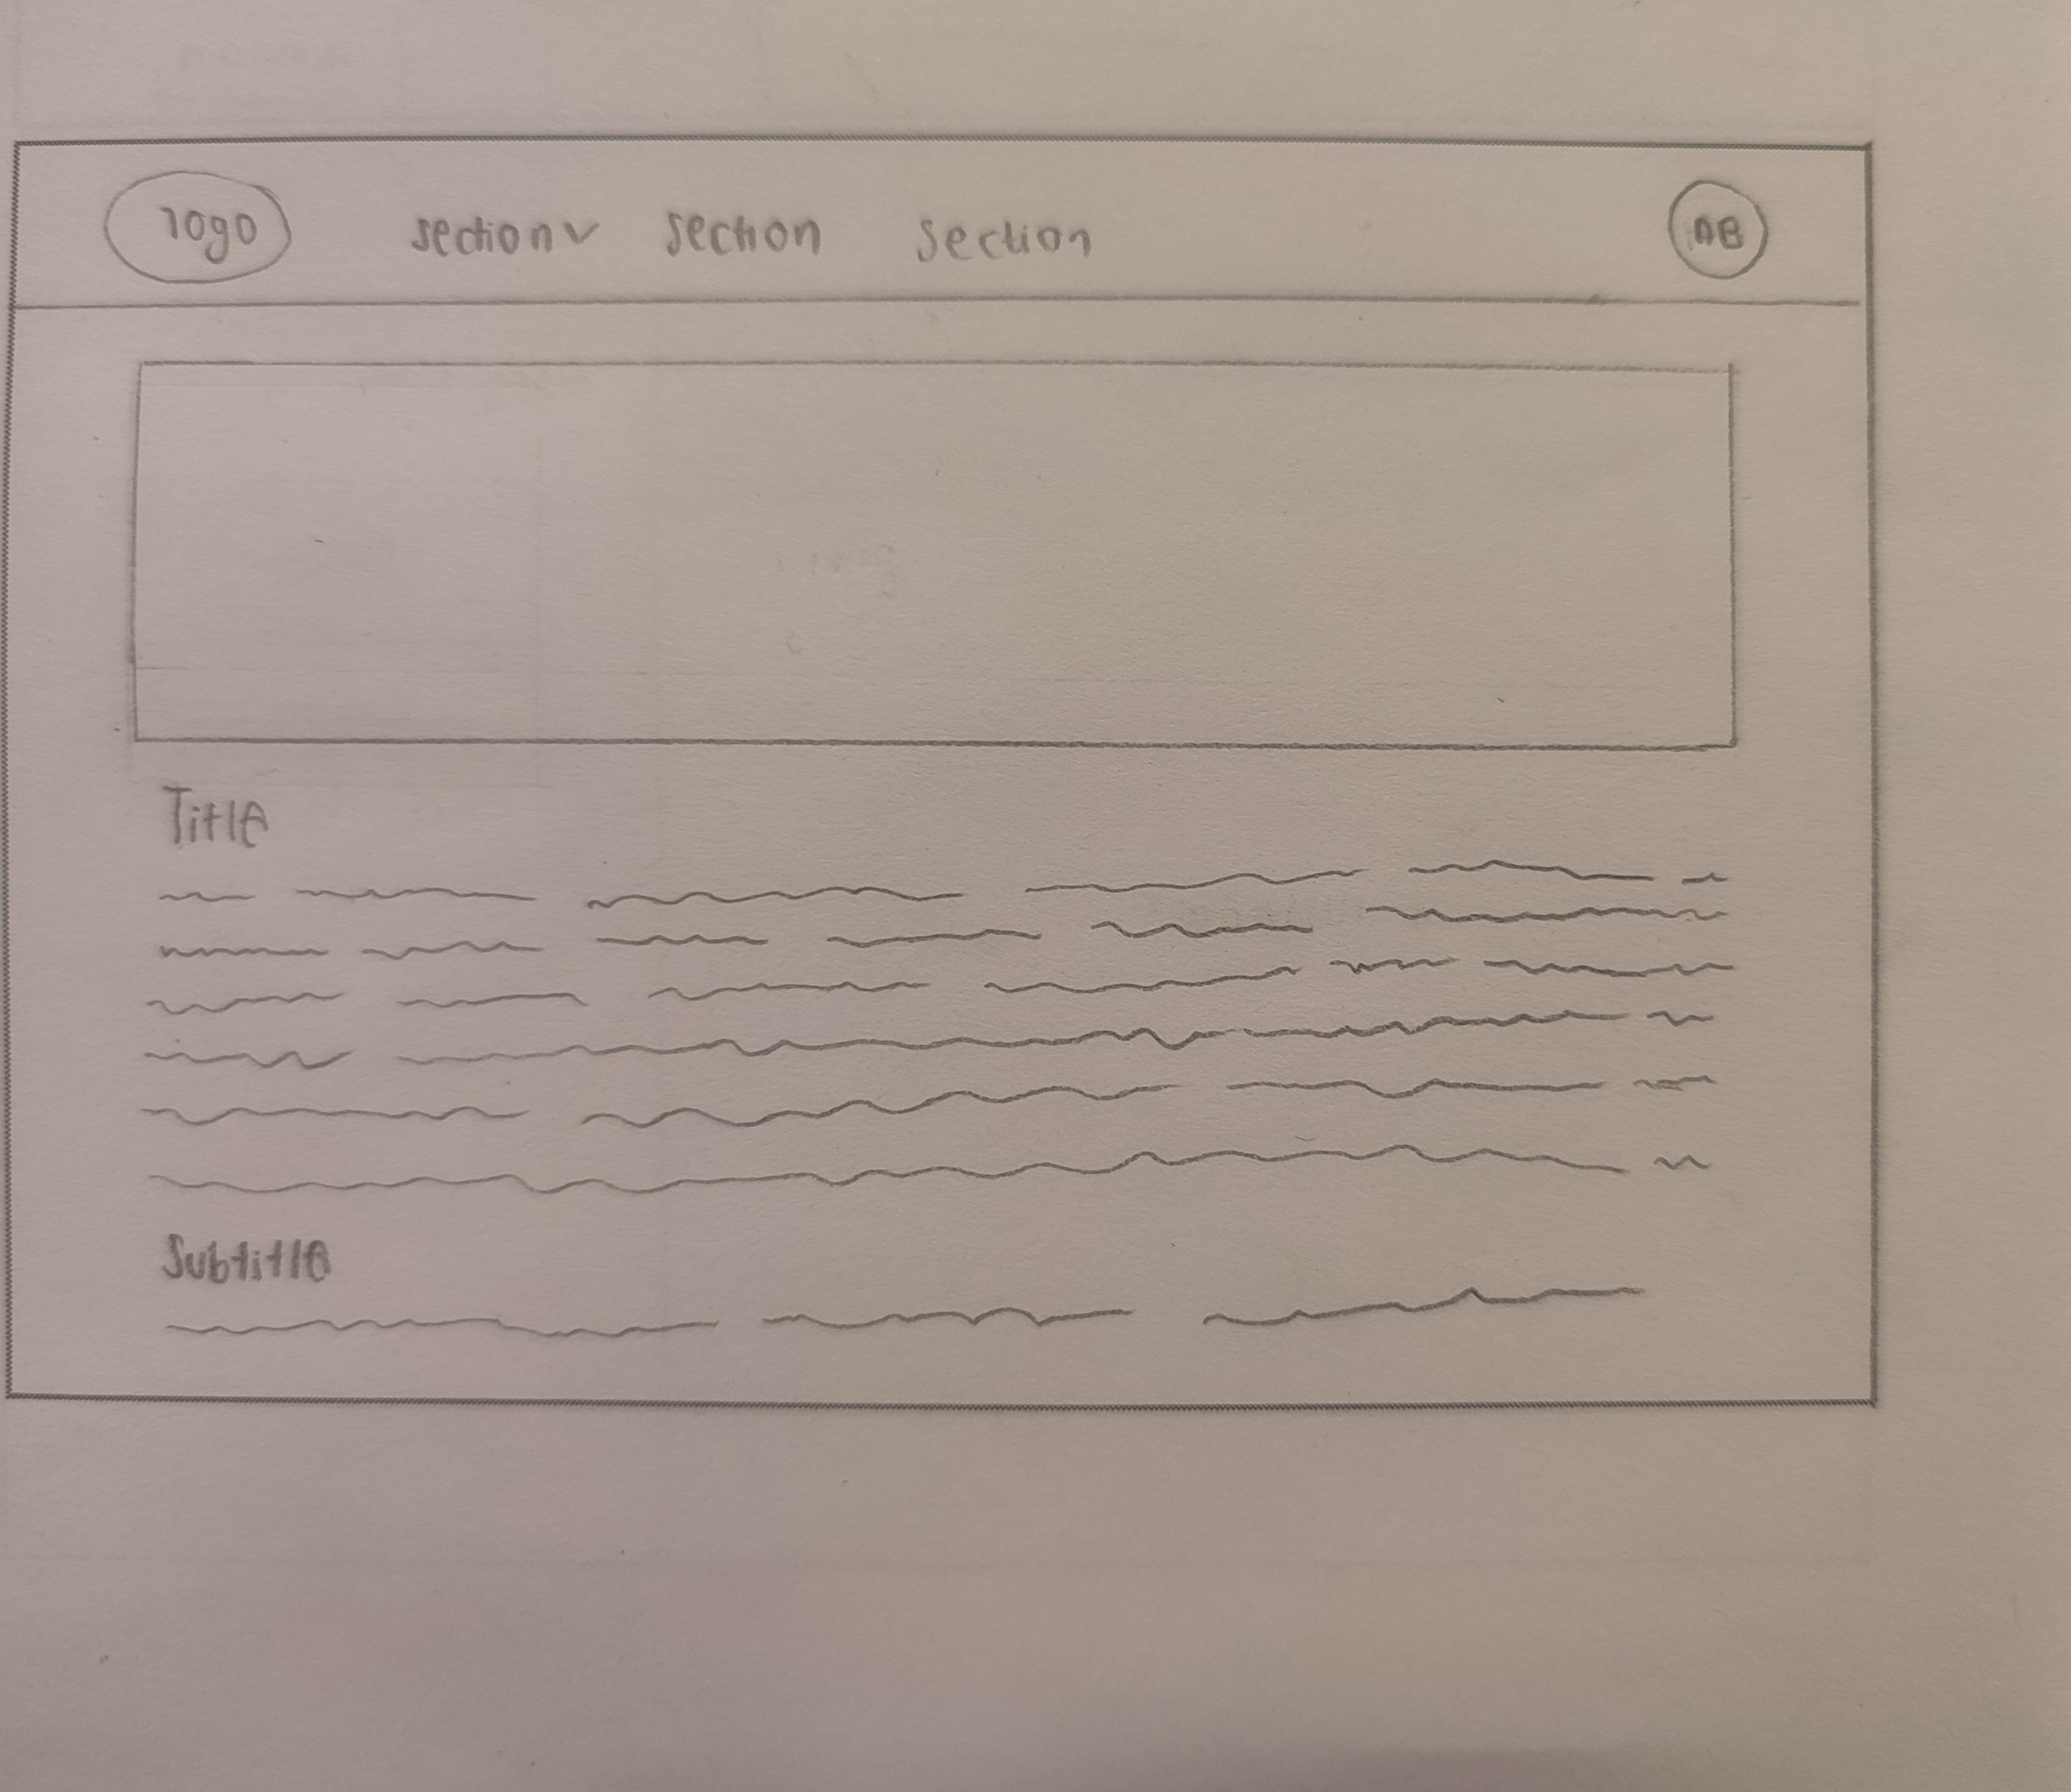 logo section v section section AB
Title
Subtitle